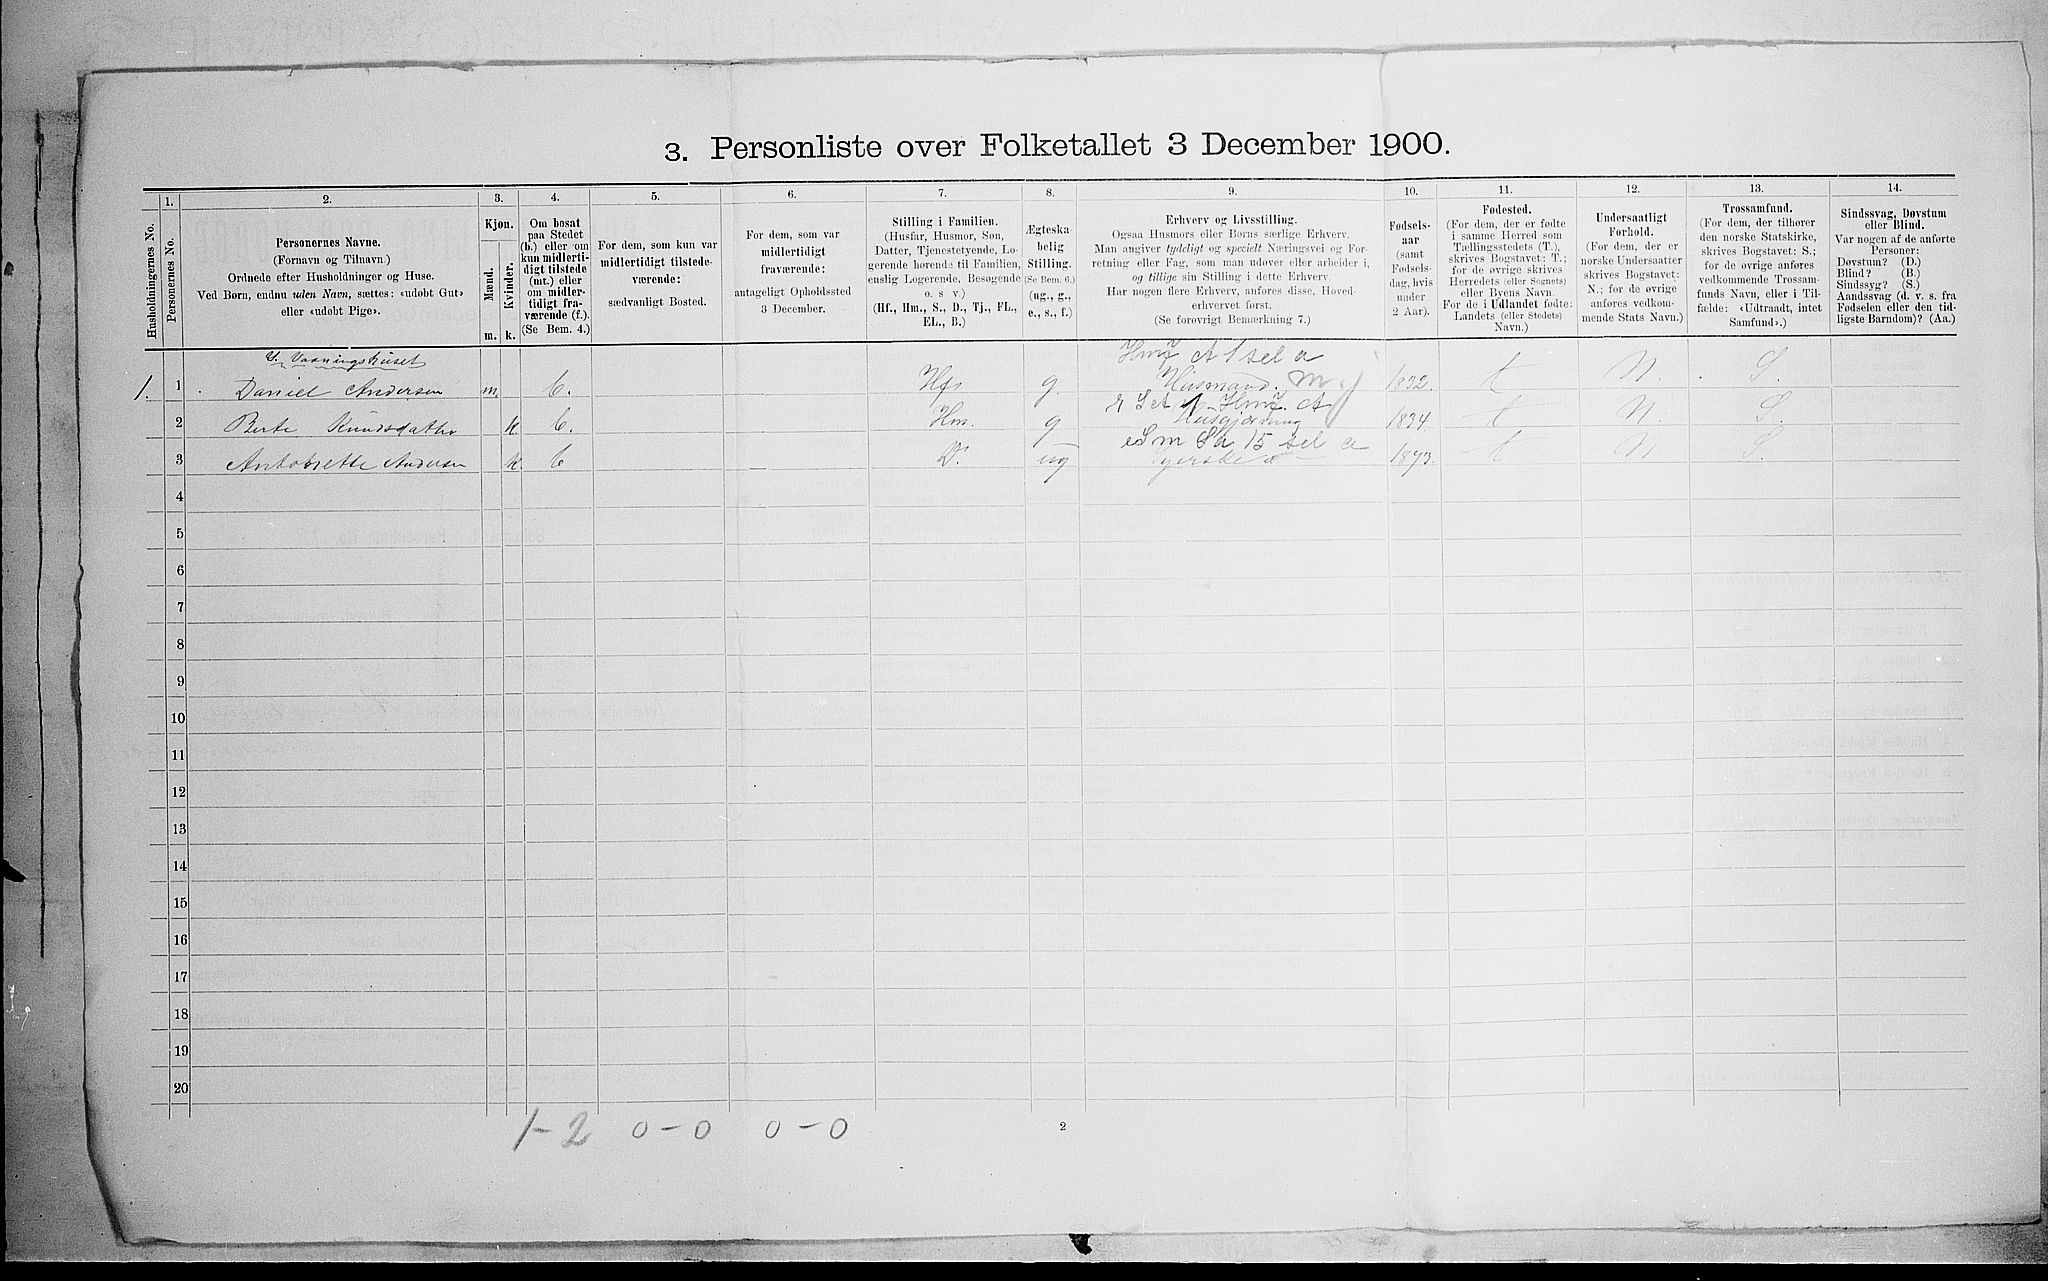 3. Personliste over Folketallet 3 December 1900.
1. 2. 3. 4. 5. 6. 7. 8. 9. 10. 11. 12. 13. 14.
Husholdningernes No.
Personernes No.
Personernes Navne.
(Fornavn og Tilnavn.)
Ordnede efter Husholdninger og Huse.
Ved Børn, endnu uden Navn, sættes: «udøbt Gut»
eller «udøbt Pige».
Kjøn.
Mænd.
Kvinder.
m. k.
Om bosat
paa Stedet
(b.) eller om
kun midlerti-
digt tilstede
(mt.) eller
om midler-
tidigt fra-
værende (f.).
(Se Bem. 4.)
For dem, som kun var
midlertidigt tilstede-
værende:
sædvanligt Bosted.
For dem, som var
midlertidigt
fraværende:
antageligt Opholdssted
3 December.
Stilling i Familien.
(Husfar, Husmor, Søn,
Datter, Tjenestetyende, Lo-
gerende hørende til Familien,
enslig Logerende, Besøgende
o. s. v.)
(Hf., Hm., S., D., Tj., FL.,
EL., B.)
Ægteska-
belig
Stilling.
(Se Bem. 6.)
(ug., g.,
e., s., f.)
Erhverv og Livsstilling.
Ogsaa Husmors eller Børns særlige Erhverv.
Man angiver tydeligt og specielt Næringsvei og For-
retning eller Fag, som man udøver eller arbeider i,
og tillige sin Stilling i dette Erhverv.
Har nogen flere Erhverv, anføres disse, Hoved-
erhvervet først.
(Se forøvrigt Bemærkning 7.)
Fødsels-
aar
(samt
Fødsels-
dag, hvis
under
2 Aar).
Fødested.
(For dem, der er fødte
i samme Herred som
Tællingsstedets (T.),
skrives Bogstavet: T.;
for de øvrige skrives
Herredets (eller Sognets)
eller Byens Navn.
For de i Udlandet fødte:
Landets (eller Stedets)
Navn.)
Undersaatligt
Forhold.
(For dem, der er
norske Undersaatter
skrives Bogstavet:
N.; for de øvrige
anføres vedkom-
mende Stats Navn.)
Trossamfund.
(For dem, der tilhører
den norske Statskirke,
skrives Bogstavet: S.;
for de øvrige anføres
vedkommende Trossam-
funds Navn, eller i Til-
fælde: «Udtraadt, intet
Samfund».)
Sindssvag, Døvstum
eller Blind.
Var nogen af de anførte
Personer:
Døvstum? (D.)
Blind? (B.)
Sindssyg? (S.)
Aandssvag (d. v. s. fra
Fødselen eller den tid-
ligste Barndom)? (Aa.)
Vaaningshuset
1. 1 Daniel Andersen m. b. Hf. g. Husmand. 1832. t N. S.
2 Berte Knudsdatter k. b. Hm. g Husgjerning 1834. t N S.
3 Andersen k. b D. ug Syerske 1873. t N S.
4
5
6
7
8
9
10
11
12
13
14
15
16
17
18
19
20
1-2 0-0 0-0
2